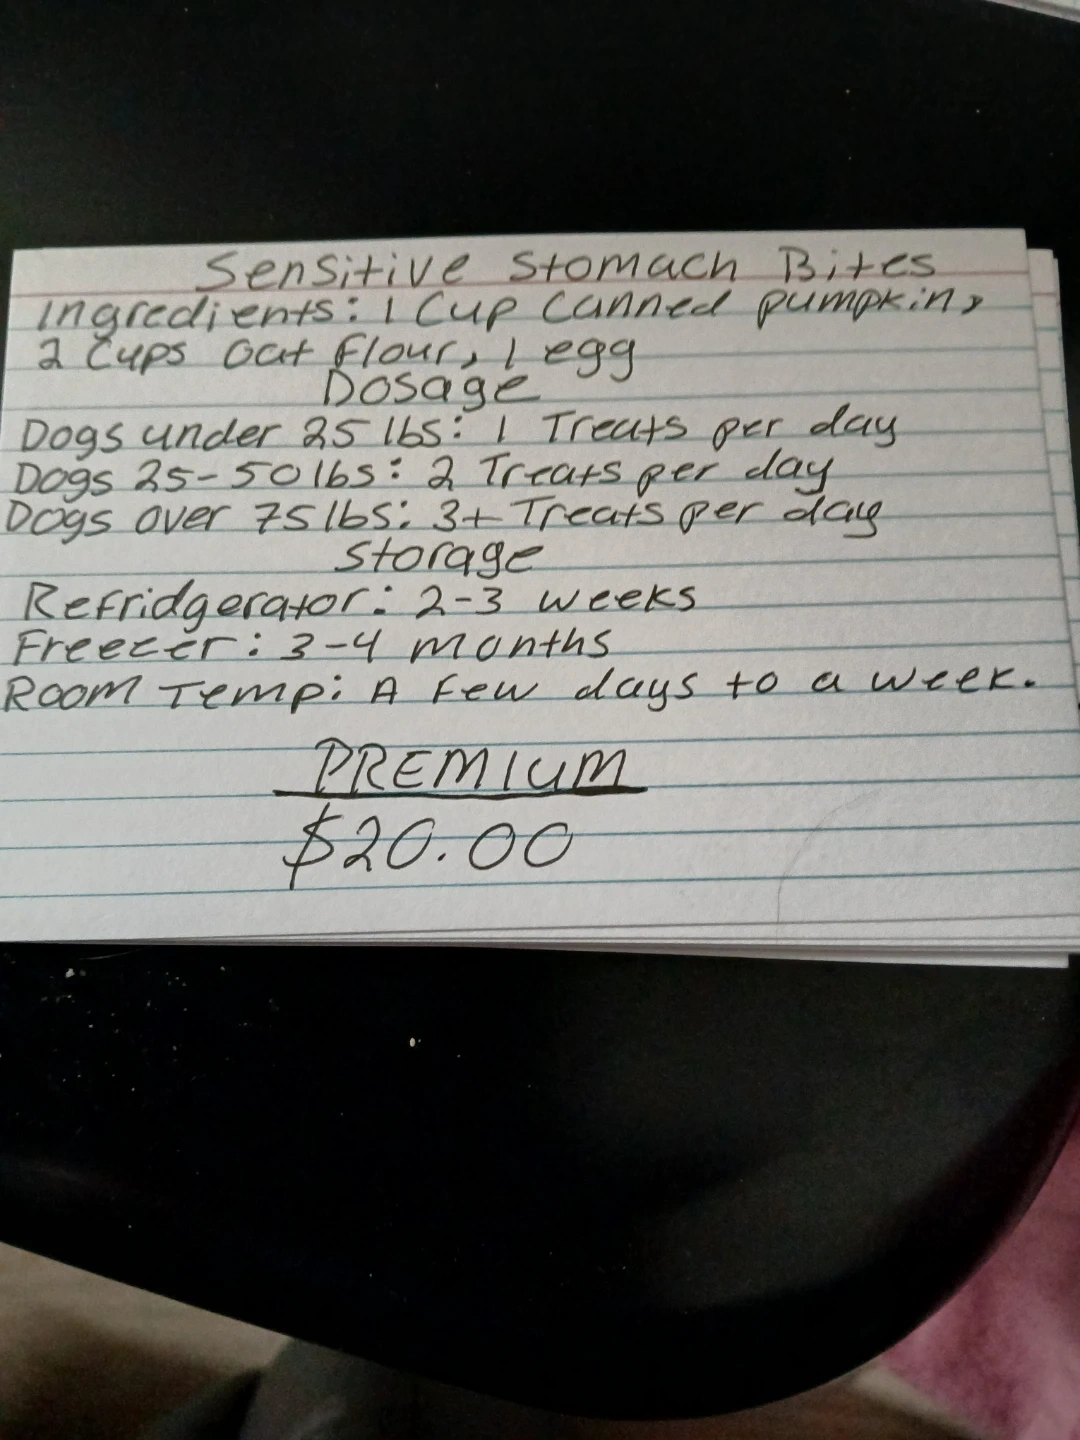 Sensitive Stomach Bites
Ingredients: 1 Cup Canned pumpkin,
2 Cups oat flour, 1 egg
Dosage
Dogs under 25 lbs: 1 Treats per day
Dogs 25-50 lbs: 2 Treats per day
Dogs over 75 lbs: 3+ Treats per day
Storage
Refridgerator: 2-3 weeks
Freezer: 3-4 months
Room Temp: A few days to a week.
PREMIUM
$20.00